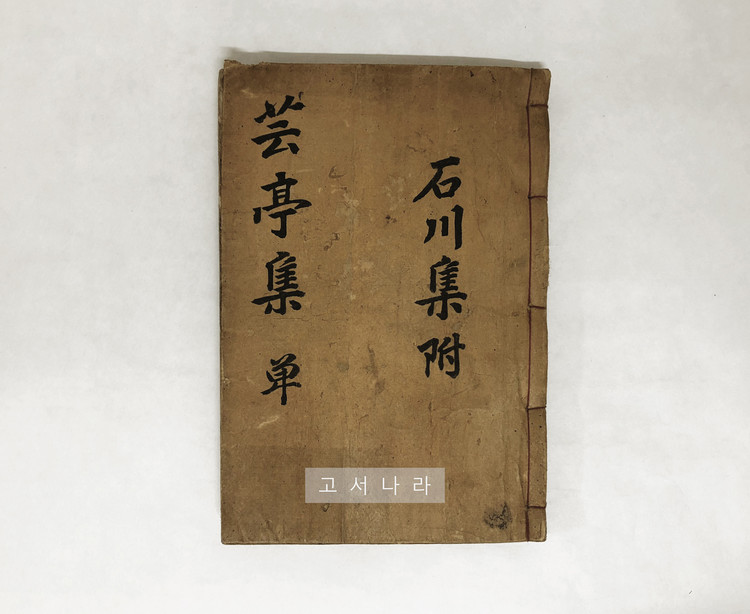 石川集附
芸亭集 单
고서나라